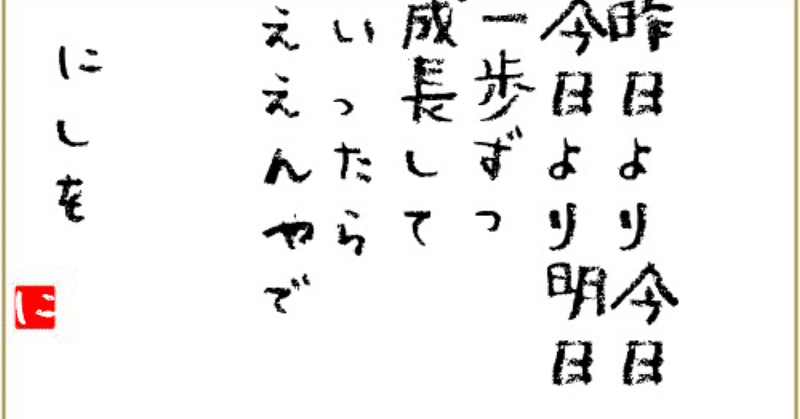 昨日より今日
今日より明日
一歩ずつ
成長して
いったら
ええんやで
にしを
に